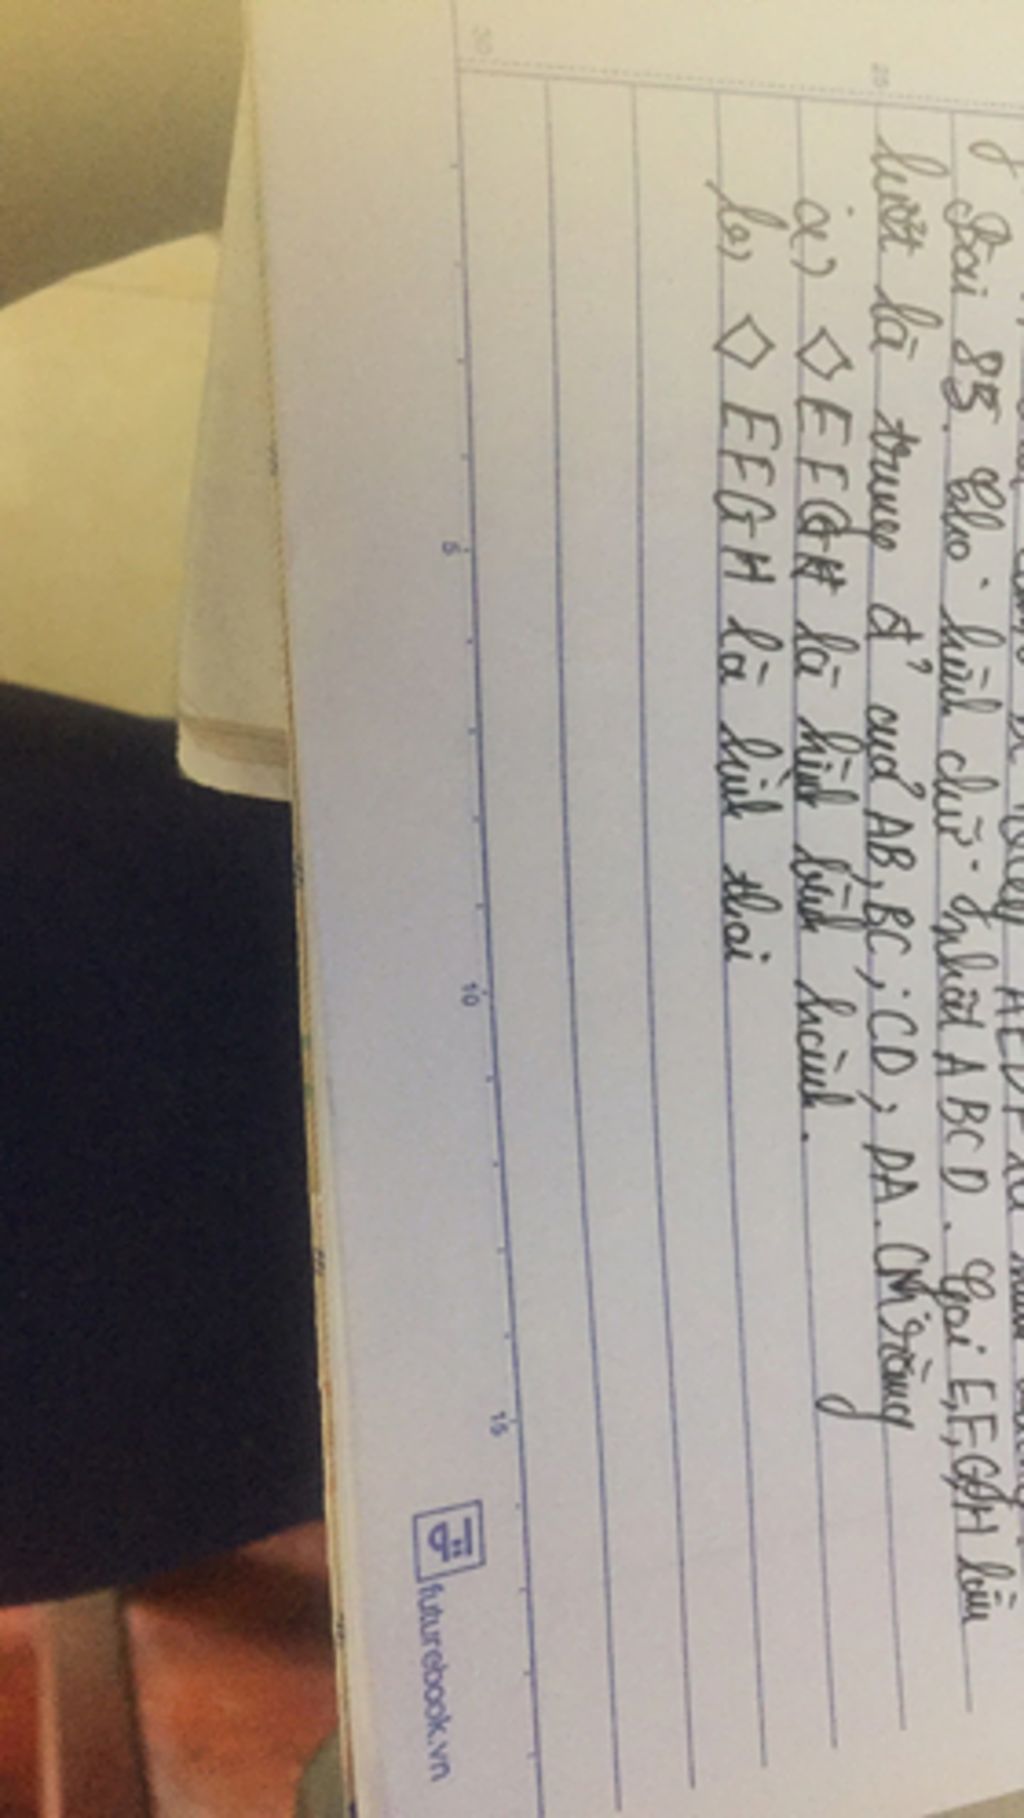 AEDF là hình
Bài 85. Cho hình chữ nhật ABCD. Gọi E,F,G,H lần
lượt là trung đ' của AB, BC; CD; DA. CM rằng
a) ◇ EFGH là hình bình hành.
b) ◇ EFGH là hình thoi
30
25
5
10
15
futurebook.vn